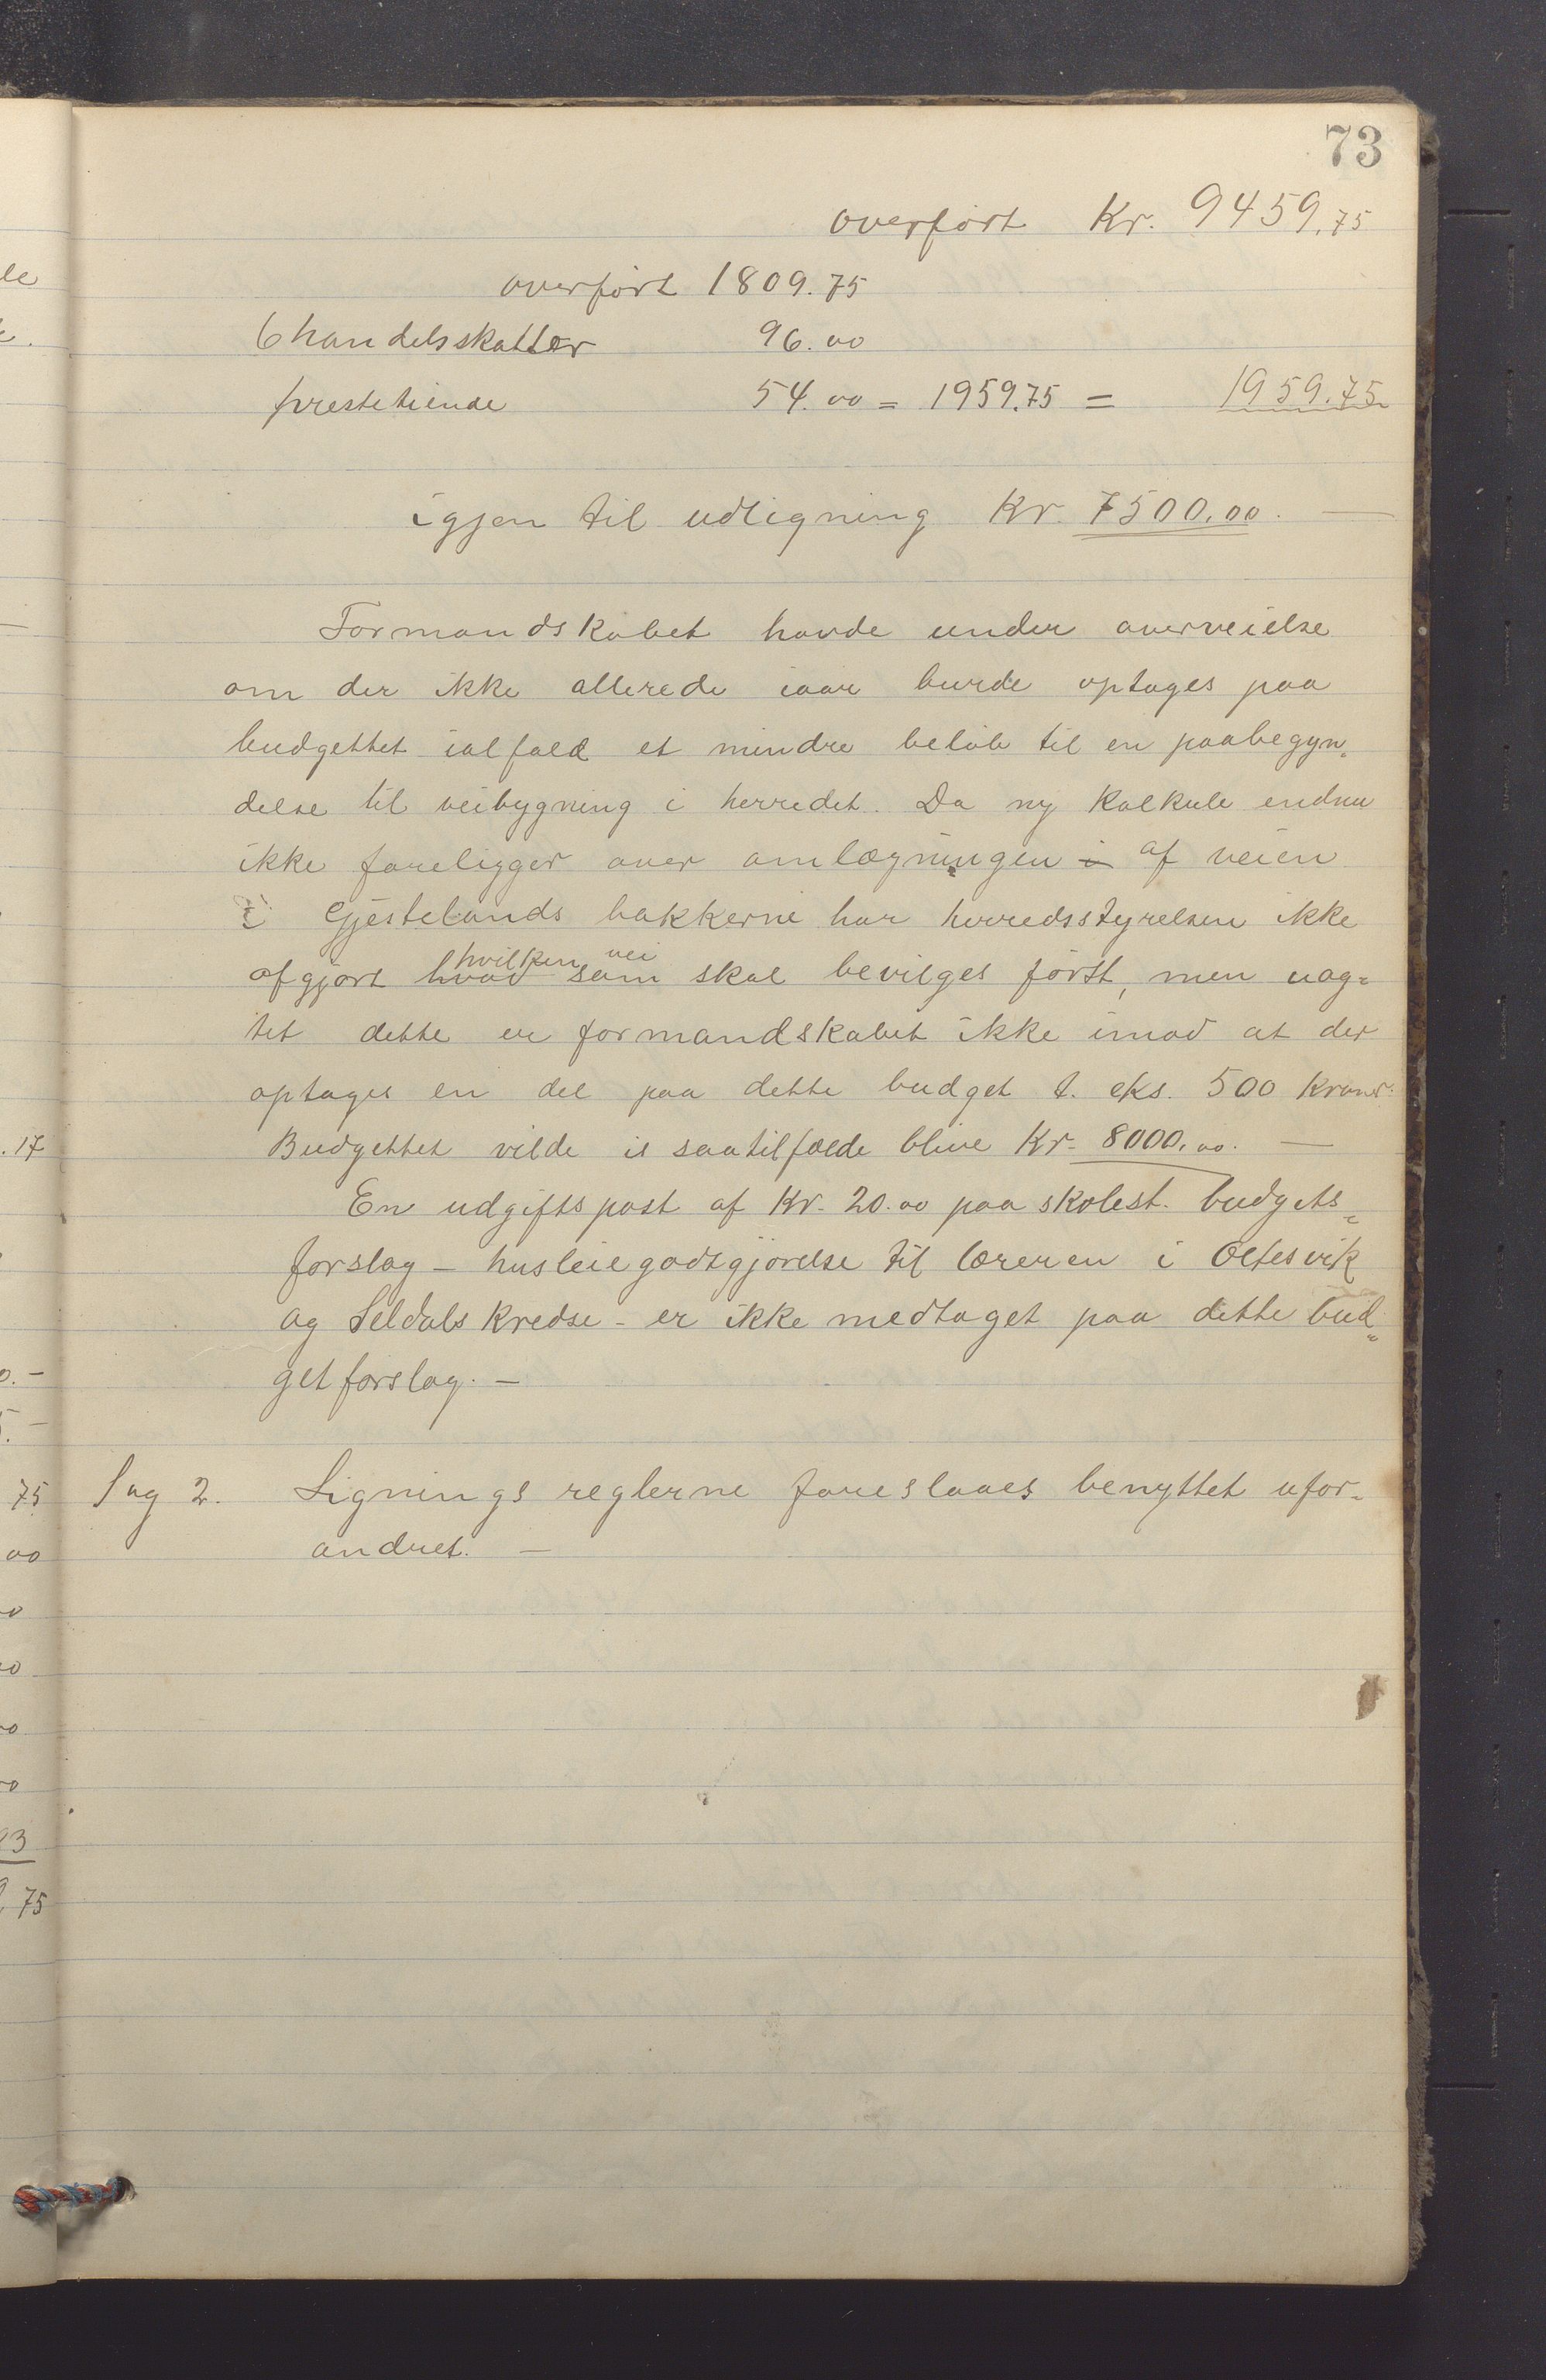 73
overført Kr. 9459.75
overført 1809.75
6 handelsskatter 96.00
prestetiende 54.00 = 1959.75 = 1959.75
igjen til udligning Kr. 7500.00. —
Formandskabet havde under overveielse
om der ikke allerede iaar burde optages paa
budgettet ialfald et mindre beløb til en paabegyn-
delse til veibygning i herredet. Da ny kalkule endnu
ikke foreligger over omlægningen i af veien
i Gjestelandsbakkerne har herredsstyrelsen ikke
afgjort hvad hvilken vei som skal bevilges først, men uag-
tet dette er formandskabet ikke imod at der
optages en del paa dette budget t. eks. 500 kroner.
Budgettet vilde is saatilfælde blive Kr. 8000.00. —
En udgiftspost af Kr. 20.00 paa skolest. budgets-
forslag – husleiegodtgjørelse til læreren i Oltesvik
og Seldals kredse – er ikke medtaget paa dette bud-
getforslag. —
Sag 2. Ligningsreglerne foreslaaes benyttet ufor-
andret. —
le
.17
75
00
23
75